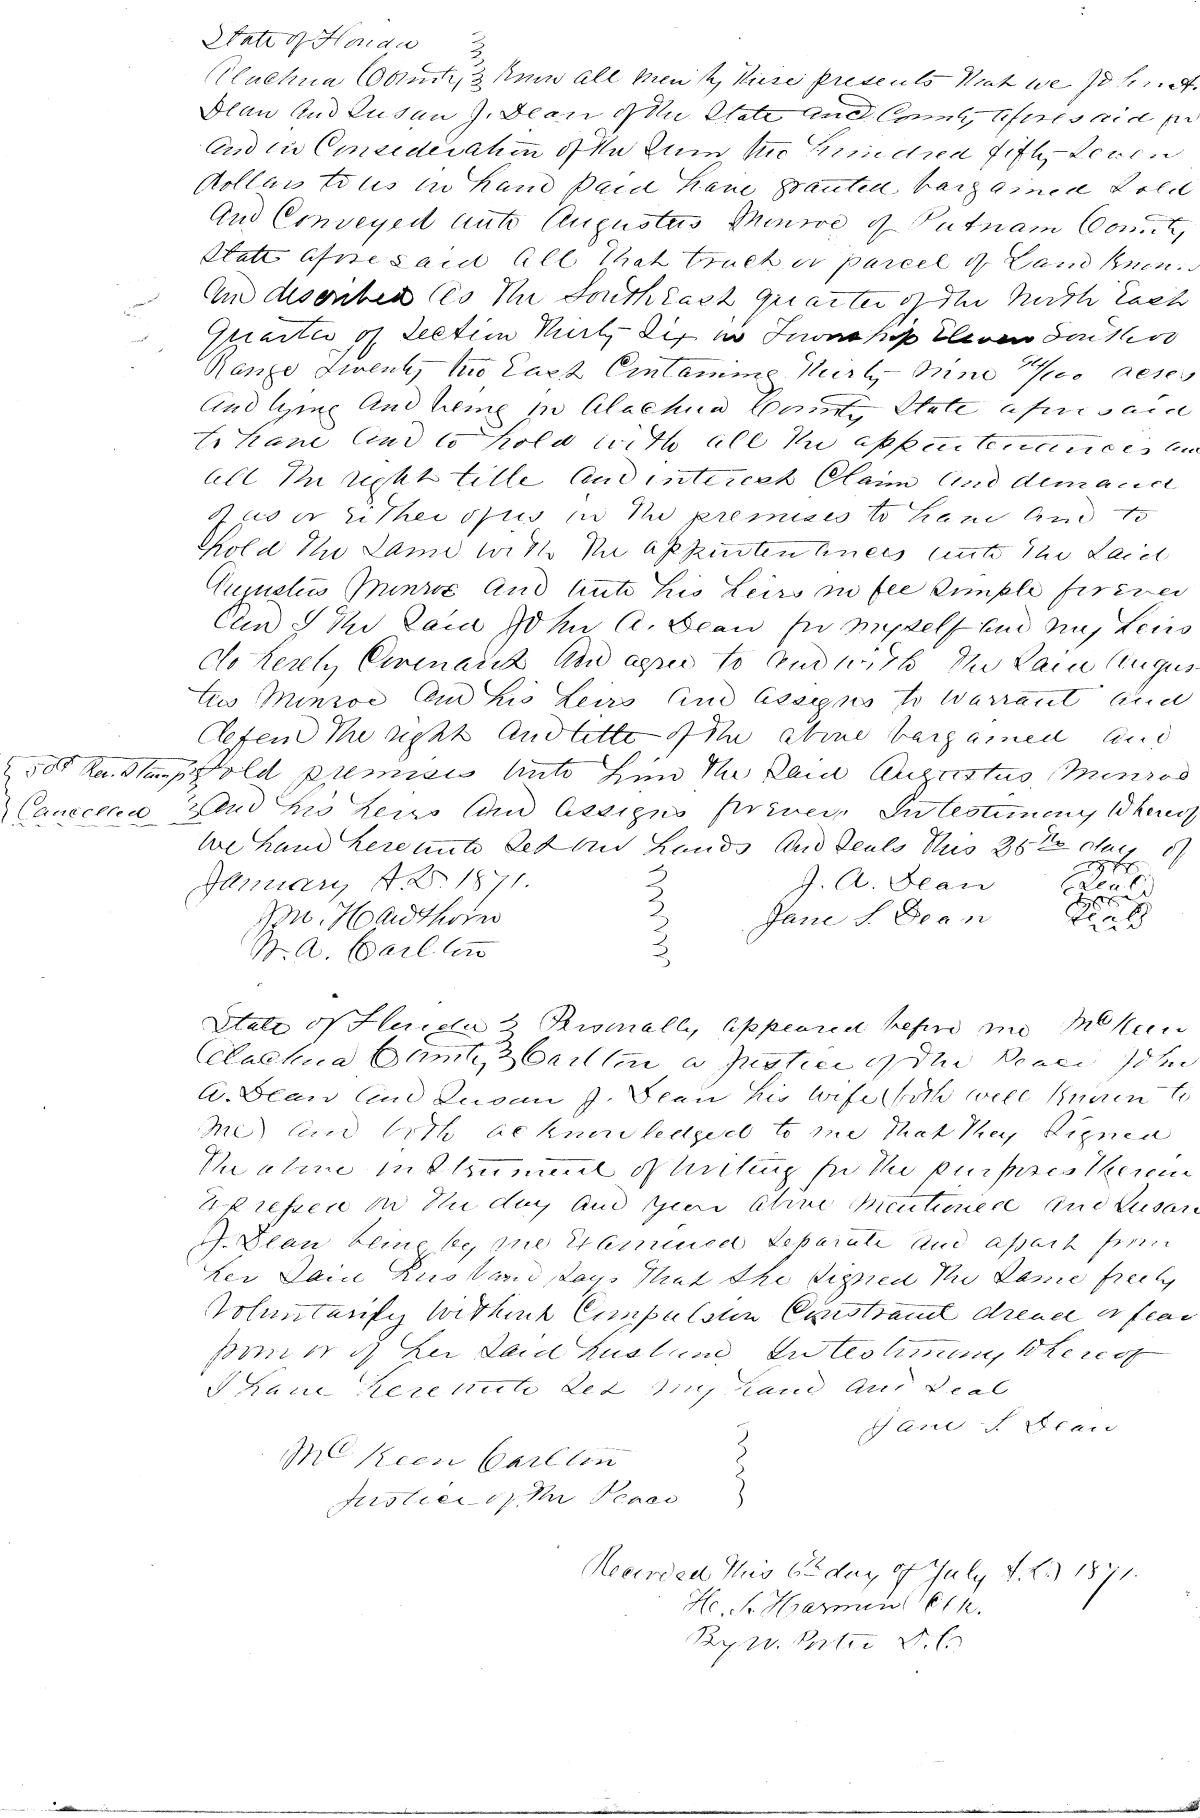 State of Florida
Alachua County Know all men by these presents that we John A.
Dean and Susan J. Dean of the State and County aforesaid for
and in Consideration of the Sum two hundred fifty seven
dollars to us in hand paid have granted bargained Sold
and Conveyed unto Augustus Monroe of Putnam County
State aforesaid all that track or parcel of Land Known
and described as the South East quarter of the North East
Quarter of Section Thirty Six in Township Eleven South
Range Twenty two East Containing Thirty Nine /100 acres
and lying and being in Alachua County State aforesaid
to have and to hold with all the appurtenances and
all the right title and interest Claim and demand
of us or Either of us in the premises to have and to
hold the Same with the appurtenances unto the Said
Augustus Monroe and unto his heirs in fee Simple forever
And I the Said John A. Dean for myself and my heirs
do hereby Covenant and agree to and with the Said Augus-
tus Monroe and his heirs and assigns to Warrant and
defend the right and title of the above bargained and
50ct Rev. Stamps Sold premises unto him the Said Augustus Monroe
Cancelled and his heirs and assigns forever. In testimony Whereof
we hand hereunto Set our hands and Seals this 25th day of
January A.D. 1871. J. A. Dean Seal
Wm. Hawthorn Jane S. Dean Seal
W. A. Carlton
State of Florida Personally appeared before me McKeen
Alachua County Carlton a Justice of the Peace John
A. Dean and Susan J. Dean his wife (both well Known to
me) and both acknowledged to me that they Signed
the above instrument of writing for the purposes therein
Expressed on the day and year above mentioned and Susan
J. Dean being by me Examined Separate and apart from
her Said Husband Says that She Signed the Same freely
Voluntarily Without Compulsion Constraint dread or fear
from or of her Said husband In testimony Whereof
I have hereunto Set my hand and Seal
Jane S. Dean
McKeen Carlton
Justice of the Peace
Recorded this 6th day of July A.D. 1871.
H. S. Harmon Clk.
By W. Porter D.C.